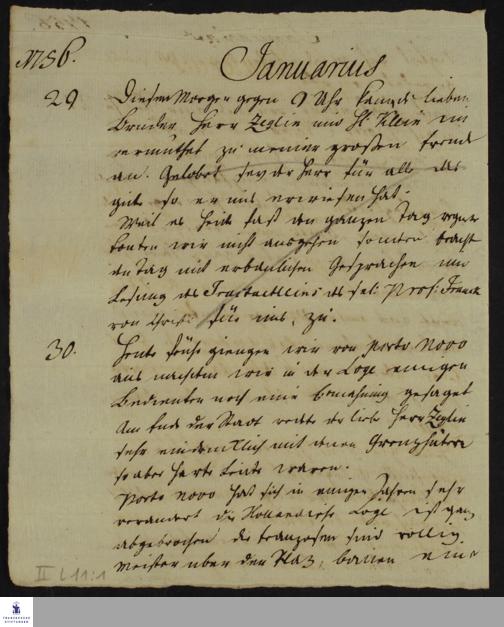 1756.
Januarius
29
Diesen Morgen gegen 9 Uhr kamen die lieben
Brüder Herr Zeglin und H. Klein un
vermuthet zu meiner großen Freude
an. Gelobet sey der Herr für alle das
gute so er uns erwiesen hat.
Weil es heute fast den ganzen Tag regnete
konten wir nicht ausgehen sondern bracht
den Tag mit erbaulichen Gesprächen und
Lesung des Tractaetleins des sel. Prof: Franck
von Christi für uns, zu.
30.
Heute frühe giengen wir von Porto Novo
aus nachdem wir in der Loge einigen
Bedienten noch eine Ermahnung gesaget
Am Ende der Stadt redete der liebe Herr Zeglin
sehr eindrücklich mit denen Grenzhütern
so aber harte Leute waren.
Porto Novo hat sich in einigen Jahren sehr
verändert die Holländische Loge ist ganz
abgebrochen die Franzosen sind völlig
Meister über den Platz, bauen eine
II L 11:1
FRANCKESCHE
STIFTUNGEN